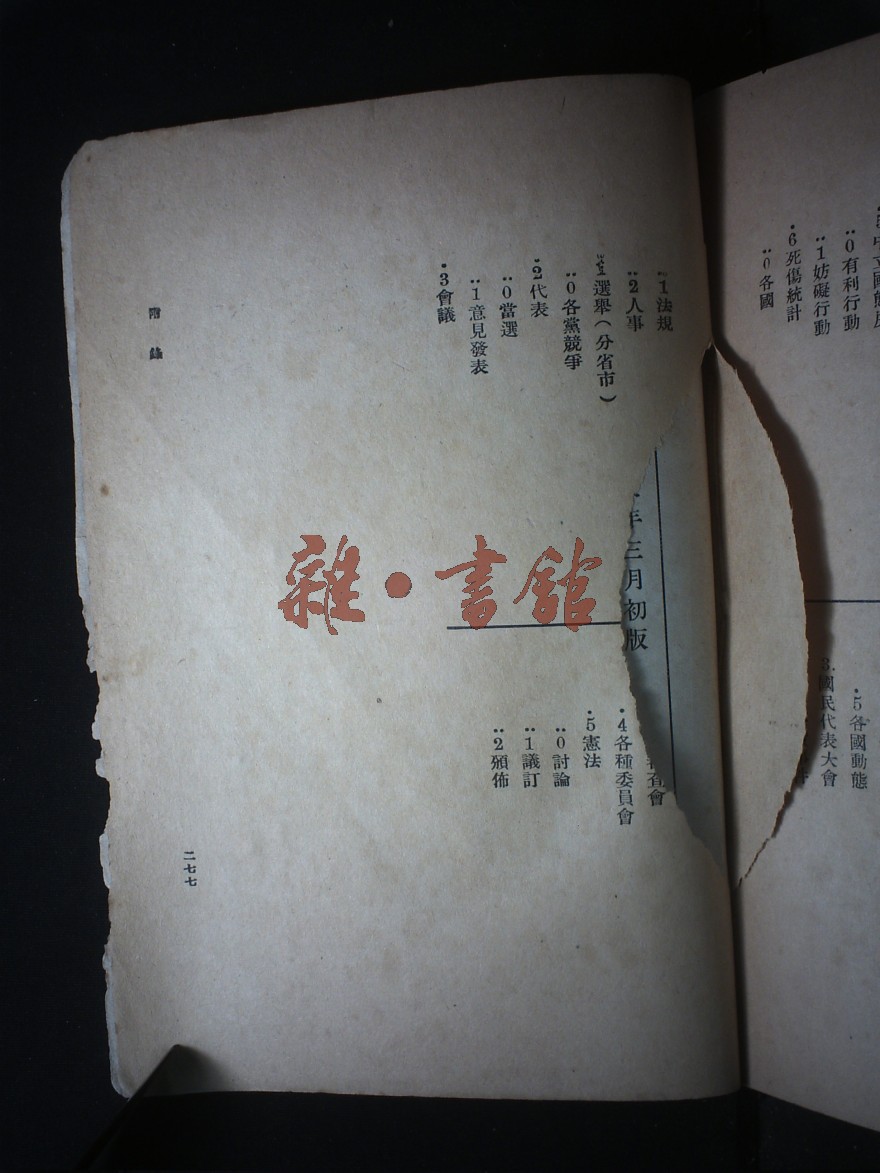 .5各國動態
3.國民代表大會
:0有利行動
:1妨礙行動
.6死傷統計
:0各國
:1法規
:2人事
.1選舉（分省市）
:0各黨競爭
.2代表
:0當選
:1意見發表
.3會議
年三月初版
查會
.4各種委員會
.5憲法
:0討論
:1議訂
:2頒佈
附錄
二七七
雜·書館